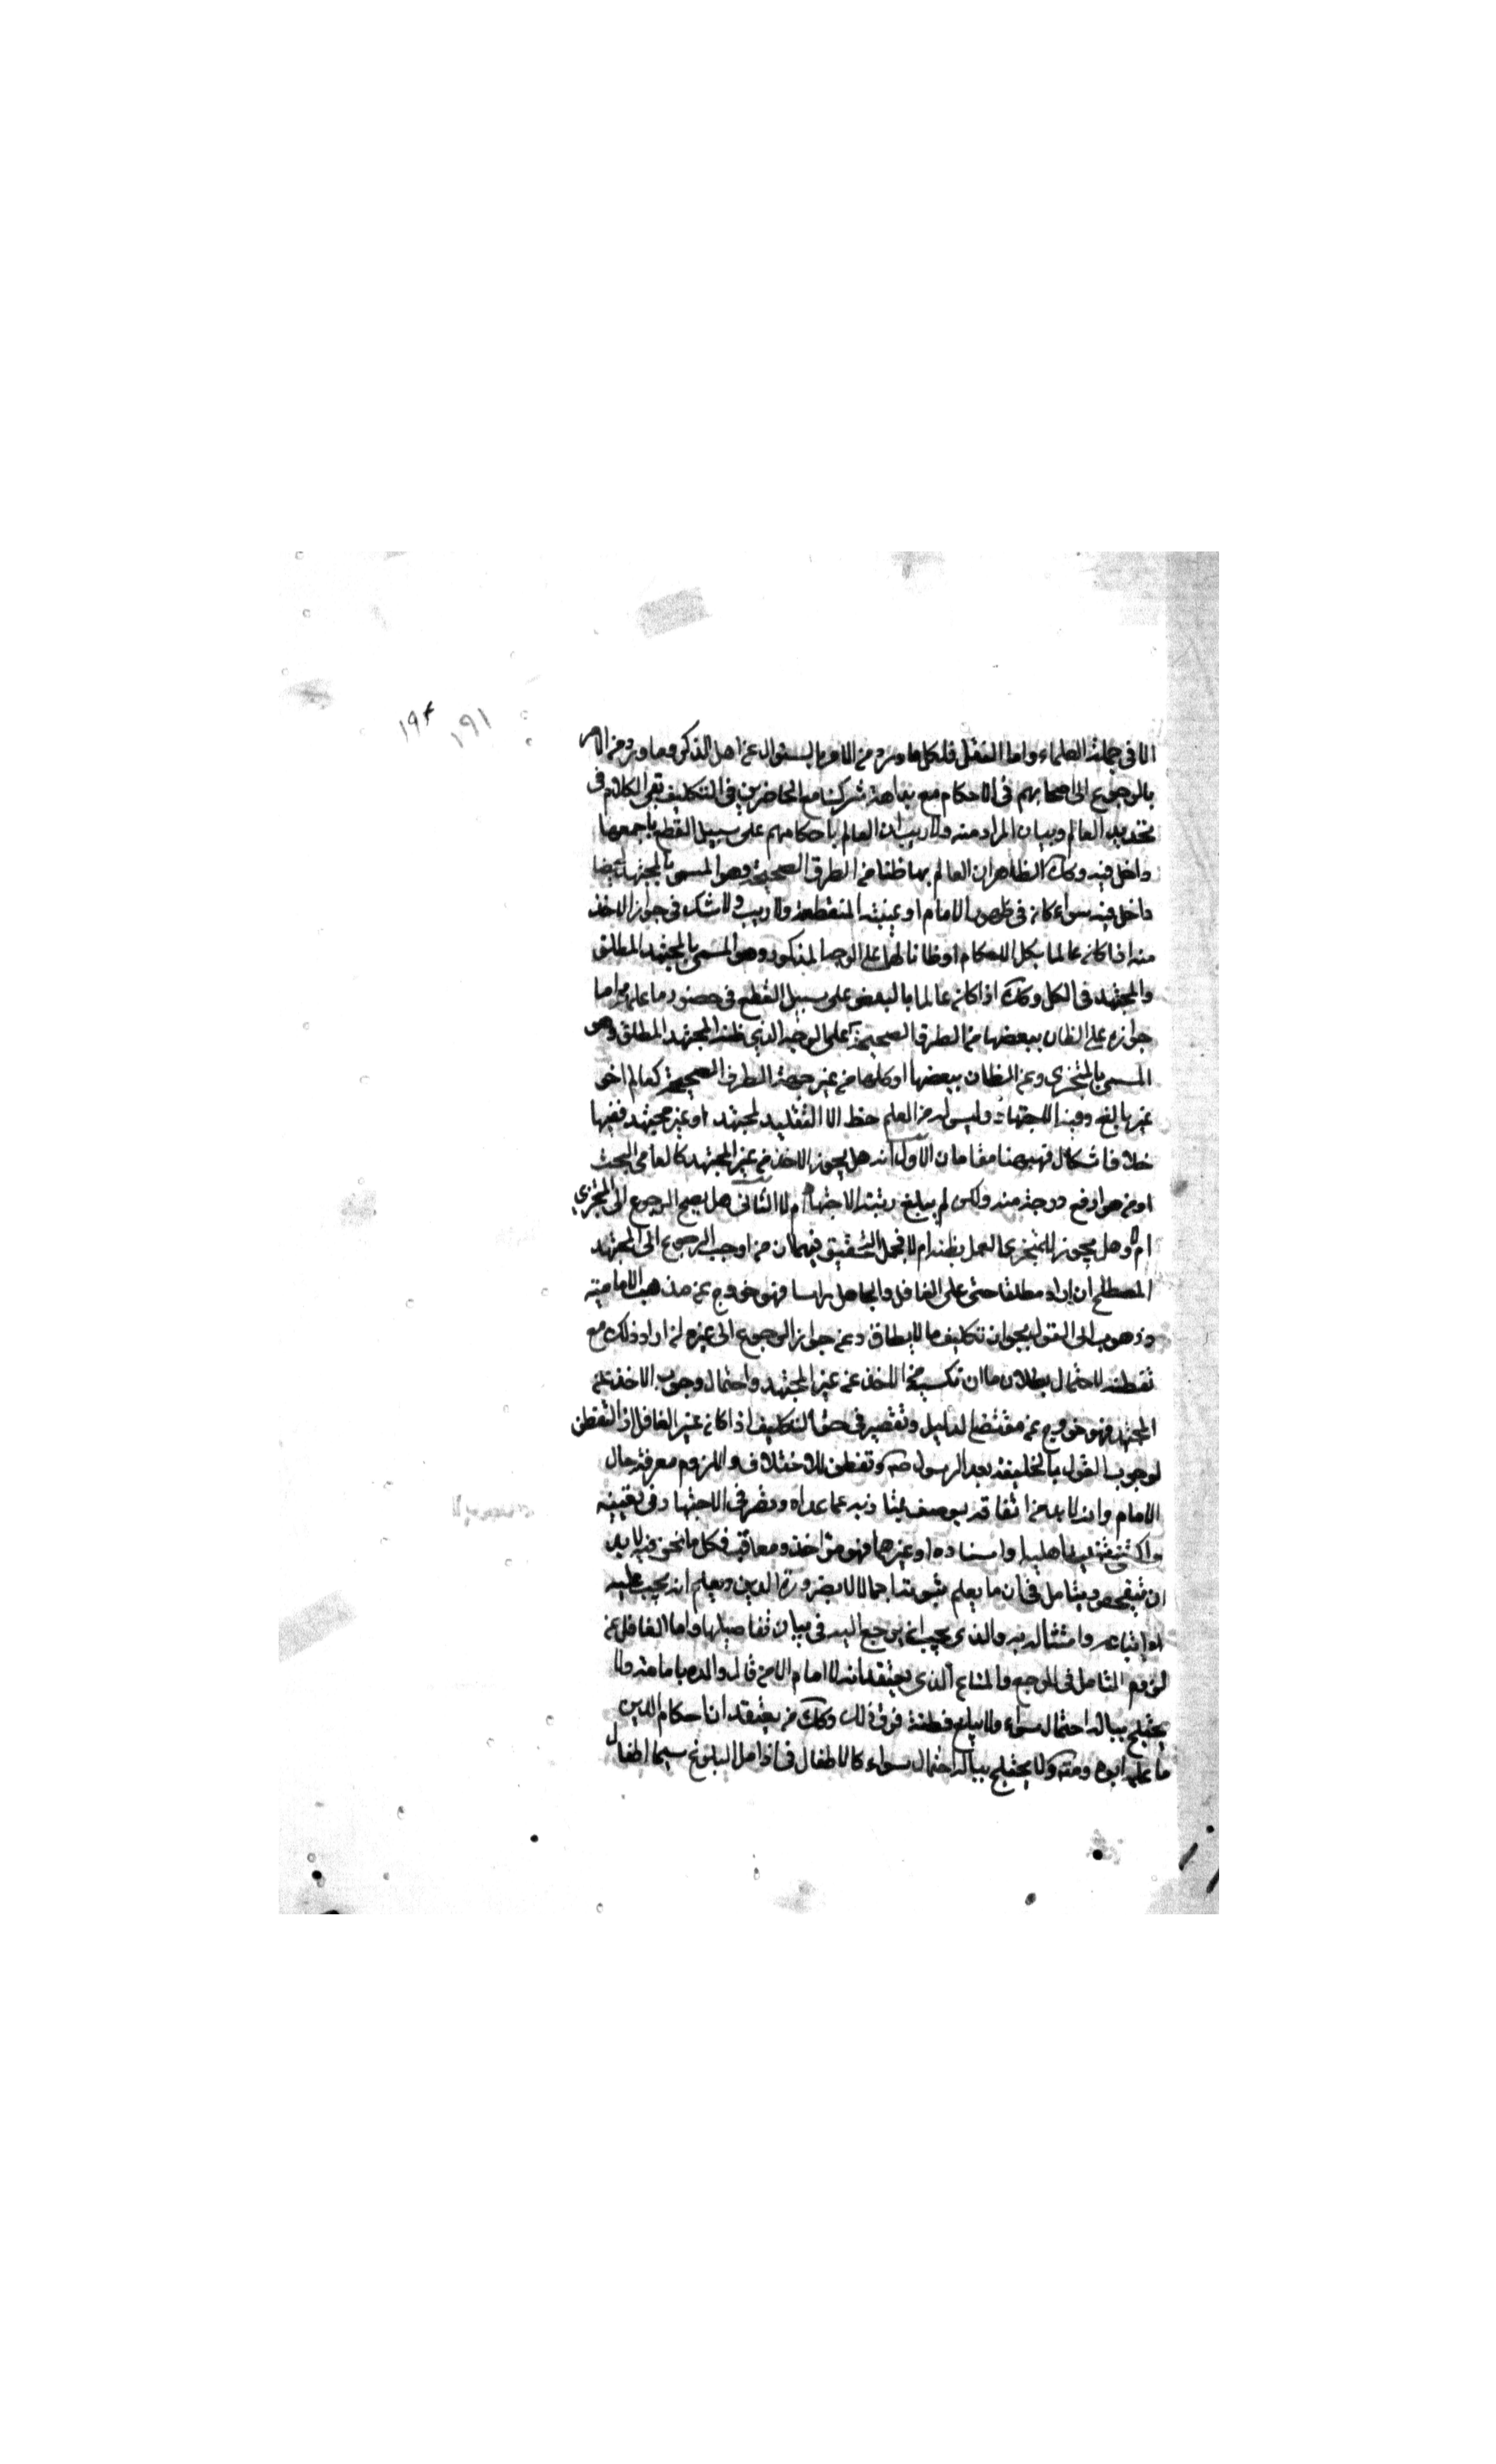 ١٩٤ ١٩١
الا في جملة العلماء واما النقل فلكل ما ورد من الامر بالسئوال عن اهل الذكر وما ورد من الامر
بالرجوع الى اصحابهم في الاحكام مع بداهة شركتنا مع الحاضرين في التكليف بقى الكلام في
تحديد العالم وبيان المراد منه ولا ريب ان العالم باحكامهم على سبيل القطع باجمعها
داخل فيه وكك الظاهر ان العالم بها ظنا من الطرق الصحيحة وهو المسمى بالمجتهد ايضا
داخل فيه سواء كان في ظهور الامام او غيبته المنقطعة ولا ريب ولا شك في جواز الاخذ
منه اذا كان عالما بكل الاحكام او ظانا لها على الوجه المذكور وهو المسمى بالمجتهد المطلق
والمجتهد في الكل وكك اذا كان عالما بالبعض على سبيل القطع في حضور ما علمه واما
جوازه على الظان ببعضها من الطرق الصحيحة على الوجه الذي ظنه المجتهد المطلق وهو
المسمى بالمتجزي وعن الظان ببعضها او كلها من غير جهة الطرق الصحيحة كعالم اخر
غير بالغ رتبة الاجتهاد وليس له من العلم حظ الا التقليد لمجتهد او غير مجتهد ففيها
خلاف اشكال فهيهنا مقامان الاول انه هل يجوز الاخذ من غير المجتهد كالعامي البحت
او من هو ارفع درجة منه ولكن لم يبلغ رتبة الاجتهاد ام لا الثاني هل يصح الرجوع الى المتجزي
ام لا وهل يجوز للمتجزي العمل بظنه ام لا فجمل التحقيق فيهما ان من اوجب الرجوع الى المجتهد
المصطلح ان اراد مطلقا حتى على الغافل والجاهل راسا فهو خروج عن مذهب الامامية
وذهوب الى القول بجواز تكليف ما لا يطاق وعن جواز الرجوع الى غيره ان اراد ذلك مع
تفطنه لاحتمال بطلان الاخذ عن غير المجتهد واحتمال وجوب الاخذ عن
المجتهد فهو خروج عن مقتضى الدليل وتقصير في حق التكليف اذا كان غير الغافل اذ التفطن
لوجوب القول بالخليفة بعد الرسول صه وتفطن للاختلاف واللزوم معرفة حال
الامام وانه لا بد من اتصافه بوصف يمتاز به عما عداه وقصر في الاجتهاد في تعيينه
واكتفى بتقليد اهليه او استاده او غيرهما فهو مؤاخذ ومعاقب فكل ما نحن فيه لا بد
ان يتفحص ويتامل في ان ما يعلم ثبوته اجمالا بضرورة الدين ويعلم انه يجب عليه
اتباعه وامتثاله به والذي يجب ان يرجع اليه في بيان تفاصيلها واما الغافل عن
لزوم التامل في المرجع والمتاع الذي يعتقد انه لا امام الا من قال والده بامامته ولا
يختلج بباله احتمال سواه ولا يبلغ فطنته فوق ذلك وكك من يعتقد ان احكام الدين
ما علمه ابوه وامه ولا يختلج بباله احتمال سواه كالاطفال في اوائل البلوغ سيما اطفال